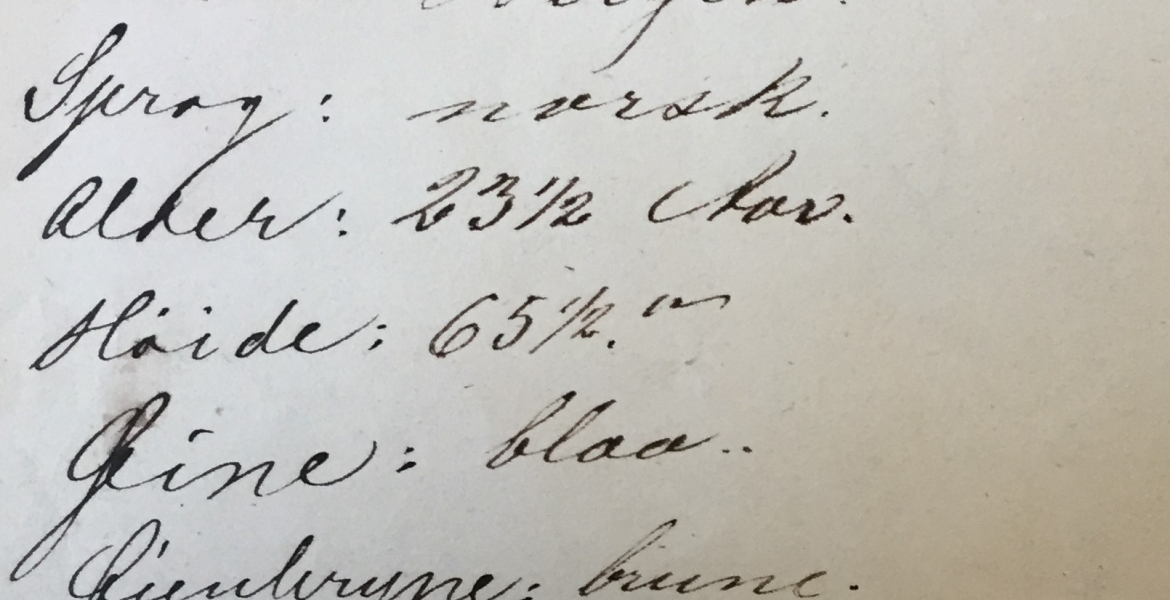 Sprog: norsk.
Alder: 23 1/2 Aar.
Høide: 65 1/2."
Øine: blaa..
Øienbryne: brune.